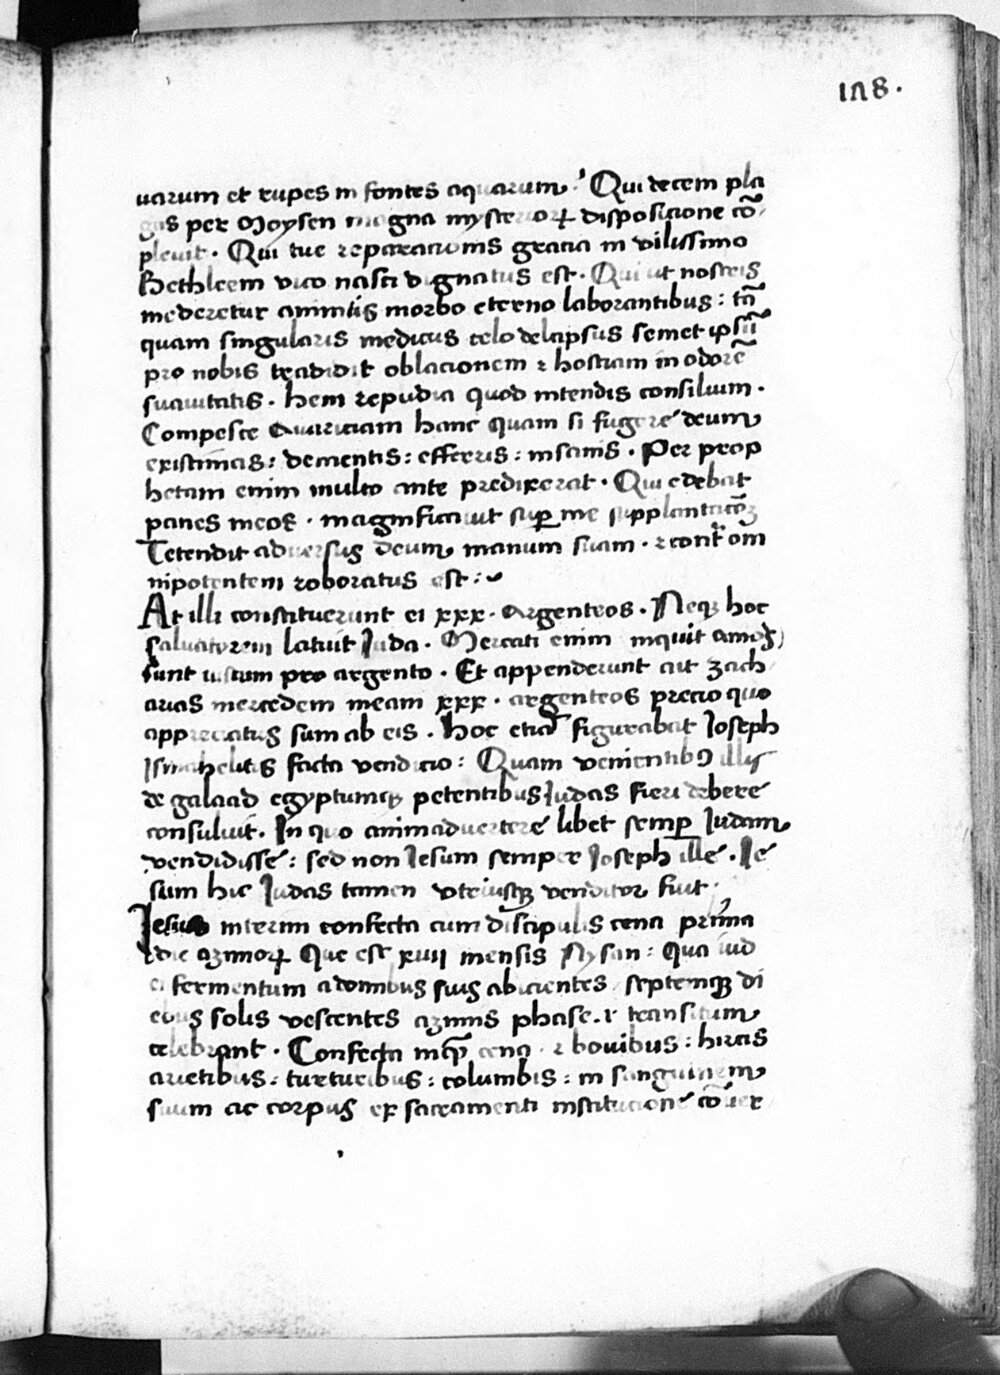 178.
uarum et rupes in fontes aquarum. Qui decem pla
gas per Moysen magna mysteriorꝝ disposicione cō
pleuit. Qui tue reparacionis gracia in vilissimo
Bethleem vico nasci dignatus est. Qui ut nostris
mederetur animis morbo eterno laborantibus: tā
quam singularis medicus celo delapsus semet ipsū
pro nobis tradidit oblacionem ⁊ hostiam in odorē
suauitatis. hem repudia quod intendis consilium.
Compesce Auariciam hanc quam si fugere deum
existimas: dementis: efferis: insanis. Per prop
hetam enim multo ante predixerat. Qui edebat
panes meos. magnificauit suꝑ me supplantacōꝫ
Tetendit aduersus deum manum suam. ⁊ contr̄ om
nipotentem roboratus est:
At illi constituerunt ei xxx. Argenteos. Neqꝫ hoc
saluatorem latuit Iuda. Mercati enim inquit amos
sunt iustum pro argento. Et appenderunt ait zach
arias mercedem meam xxx. argenteos precio quo
appreciatus sum ab eis. Hoc etiā figurabat Ioseph
Ismahelitis facta vendicio: Quam venientibꝰ illis
de galaad egyptumqꝫ petentibus Iudas fieri debere
consuluit. In quo animaduertere libet semꝑ Iudam
vendidisse: sed non Iesum semper Ioseph ille. Ie
sum hic Iudas tamen vtriusqꝫ venditor fuit.
Iesus interim confecta cum discipulis cena prima
die azimorꝝ Que est xiiii mensis Nysan: Qua iud
ei fermentum a domibus suis abicientes septemqꝫ di
ebus solis vescentes azimis phase. ⁊ transitum
celebrant. Confecta inqꝫ cena ⁊ bouibus: hircis
arietibus: turturibus: columbis: in sanguinem
suum ac corpus ex sacramenti institucione cōuer